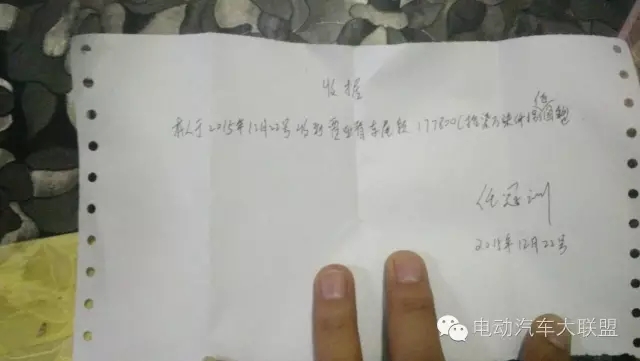 收据
本人于2015年12月22号收到曹亚辉车尾款177800(拾柒万柒仟捌佰整
任冠训
2015年12月22号
电动汽车大联盟